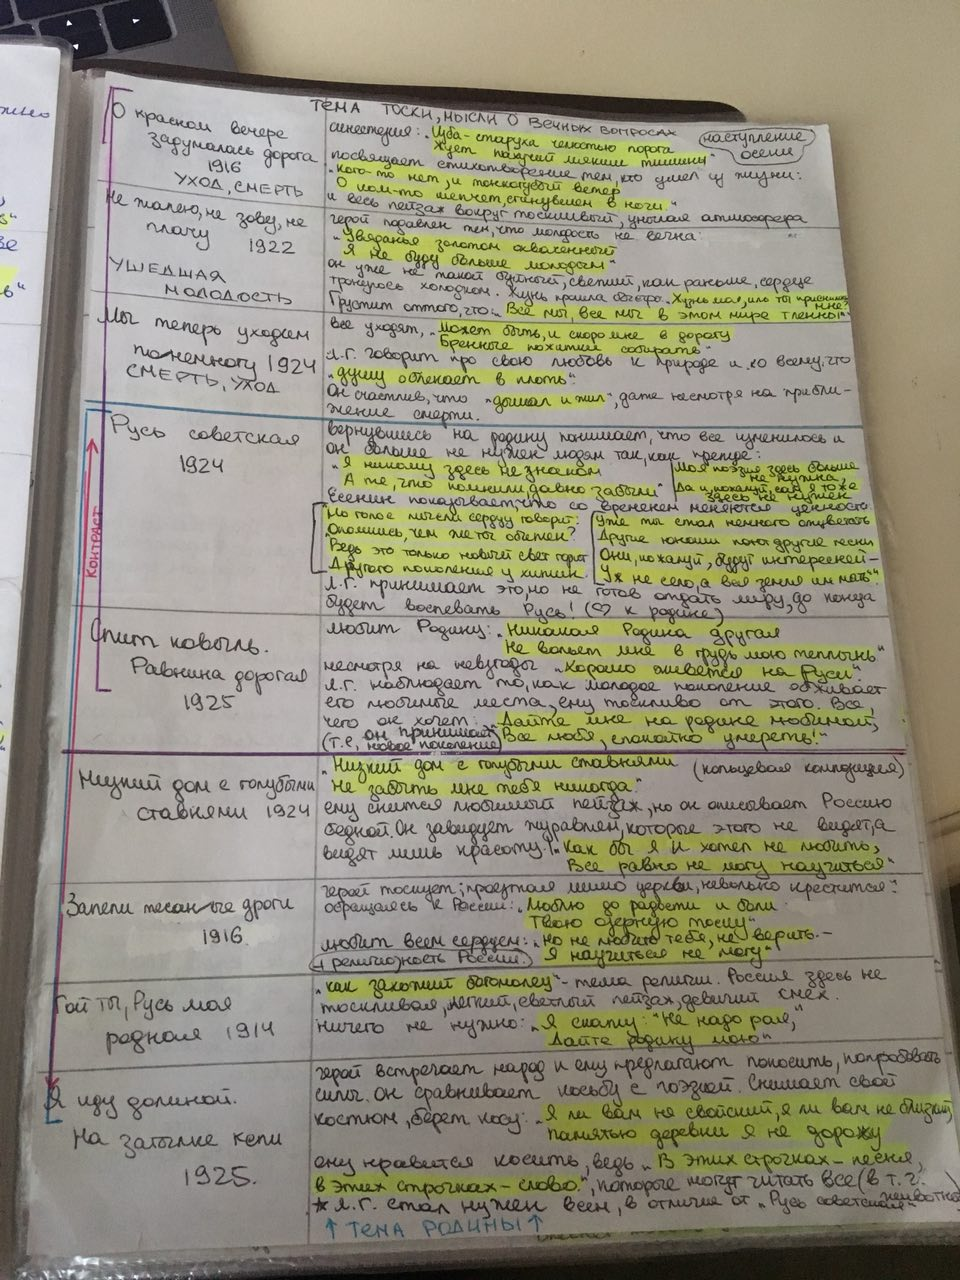 тема тоски, мысли о вечных вопросах
наступление
осени
О красном вечере
задумалась дорога
1916
уход, смерть
синестезия: „Изба-старуха челюстью порога
Жует пахучий мякиш тишины"
посвящает стихотворение тем, кто умел у жизни:
„Кого-то нет, и тонкогубый ветер
О ком-то шепчет, сгинувшем в ночи."
и весь пейзаж вокруг тоскливый, унылая атмосфера
Не жалею, не зову, не
плачу 1922
ушедшая
молодость
герой подавлен тем, что молодость не вечна:
„Увяданья золотом охваченный
Я не буду больше молодым"
он уже не такой буйный, свежий, как раньше, сердце
тронулось холодком. Жизнь прошла быстро. „Жизнь моя, иль ты приснилась
мне?"
Грустит оттого, что: „Все мы, все мы в этом мире тленны"
Мы теперь уходим
понемногу 1924
смерть, уход
все уходят, „Может быть, и скоро мне в дорогу
Бренные пожитки собирать"
Л.Г. говорит про свою любовь к природе и ко всему, что
„душу облекает в плоть"
Он счастлив, что „дышал и жил", даже несмотря на прибли-
жение смерти.
контраст
Русь советская
1924
вернувшись на родину понимает, что все изменилось и
он больше не нужен людям так, как прежде:
„Я никому здесь не знаком
А те, что помнили, давно забыли"
Моя поэзия здесь больше
не нужна,
Да и, пожалуй, сам я тоже
здесь не нужен
Есенин показывает, что со временем меняются ценности
„Но голос мысли сердцу говорит:
Опомнись, чем же ты обижен?
Ведь это только новый свет горит
Другого поколения у хижин
Уже ты стал немного отцветать
Другие юноши поют другие песни
Они, пожалуй, будут интересней –
Уж не село, а вся земля им мать"
Л.Г. принимает это, но не готов отдать лиру, до конца
будет воспевать Русь! (♡ к родине)
Спит ковыль.
Равнина дорогая
1925
любит Родину: „Никакая Родина другая
Не вольет мне в грудь мою теплынь"
несмотря на невзгоды „Хорошо живется на Руси".
Л.Г. наблюдает то, как молодое поколение обживает
его любимые места, ему тоскливо от этого. Все,
чего он хочет: „Дайте мне на родине любимой,
Все любя, спокойно умереть!"
(т.е. он принимает
новое поколение)
Низкий дом с голубыми
ставнями 1924
„Низкий дом с голубыми ставнями (кольцевая композиция)
Не забыть мне тебя никогда"
ему снится любимый пейзаж, но он описывает Россию
бедной. Он завидует журавлям, которые этого не видят, а
видят лишь красоту. „Как бы я и хотел не любить,
Все равно не могу научиться"
Запели тесаные дроги
1916
герой тоскует; проезжая мимо церкви, невольно крестится:
обращаясь к России: „Люблю до радости и боли
Твою озерную тоску"
любит всем сердцем: „Но не любить тебя, не верить –
Я научиться не могу"
+ религиозность России.
Гой ты, Русь моя
родная 1914
„как захожий богомолец" – тема религии. Россия здесь не
тоскливая, легкий, светлый пейзаж, девичий смех.
Ничего не нужно: „Я скажу: "Не надо рая,
Дайте родину мою"
Я иду долиной.
На затылке кепи
1925.
герой встречает народ и ему предлагают покосить, попробовать
силы. Он сравнивает косьбу с поэзией. Снимает свой
костюм, берет косу: „Я ли вам не свойский, я ли вам не близкий,
Памятью деревни я не дорожу
ему нравится косить, ведь „В этих строчках – песня,
в этих строчках – слово.", которые могут читать все (в т.ч.
животные)
* Л.Г. стал нужен всем, в отличие от „Русь советская"
↑ тема родины ↑